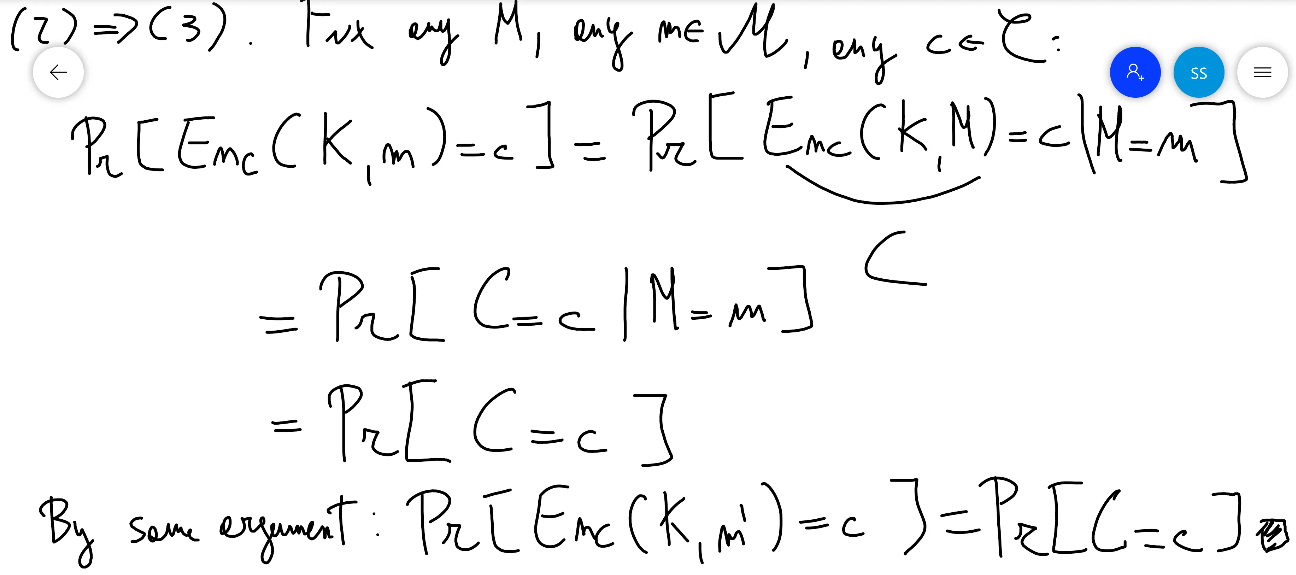 (2) => (3). Fix any M, any m ∈ ℳ, any c ∈ 𝒞:
SS
Pr[Enc(K, m) = c] = Pr[Enc(K, M) = c | M = m]
C
= Pr[C = c | M = m]
= Pr[C = c]
By same argument: Pr[Enc(K, m') = c] = Pr[C = c]